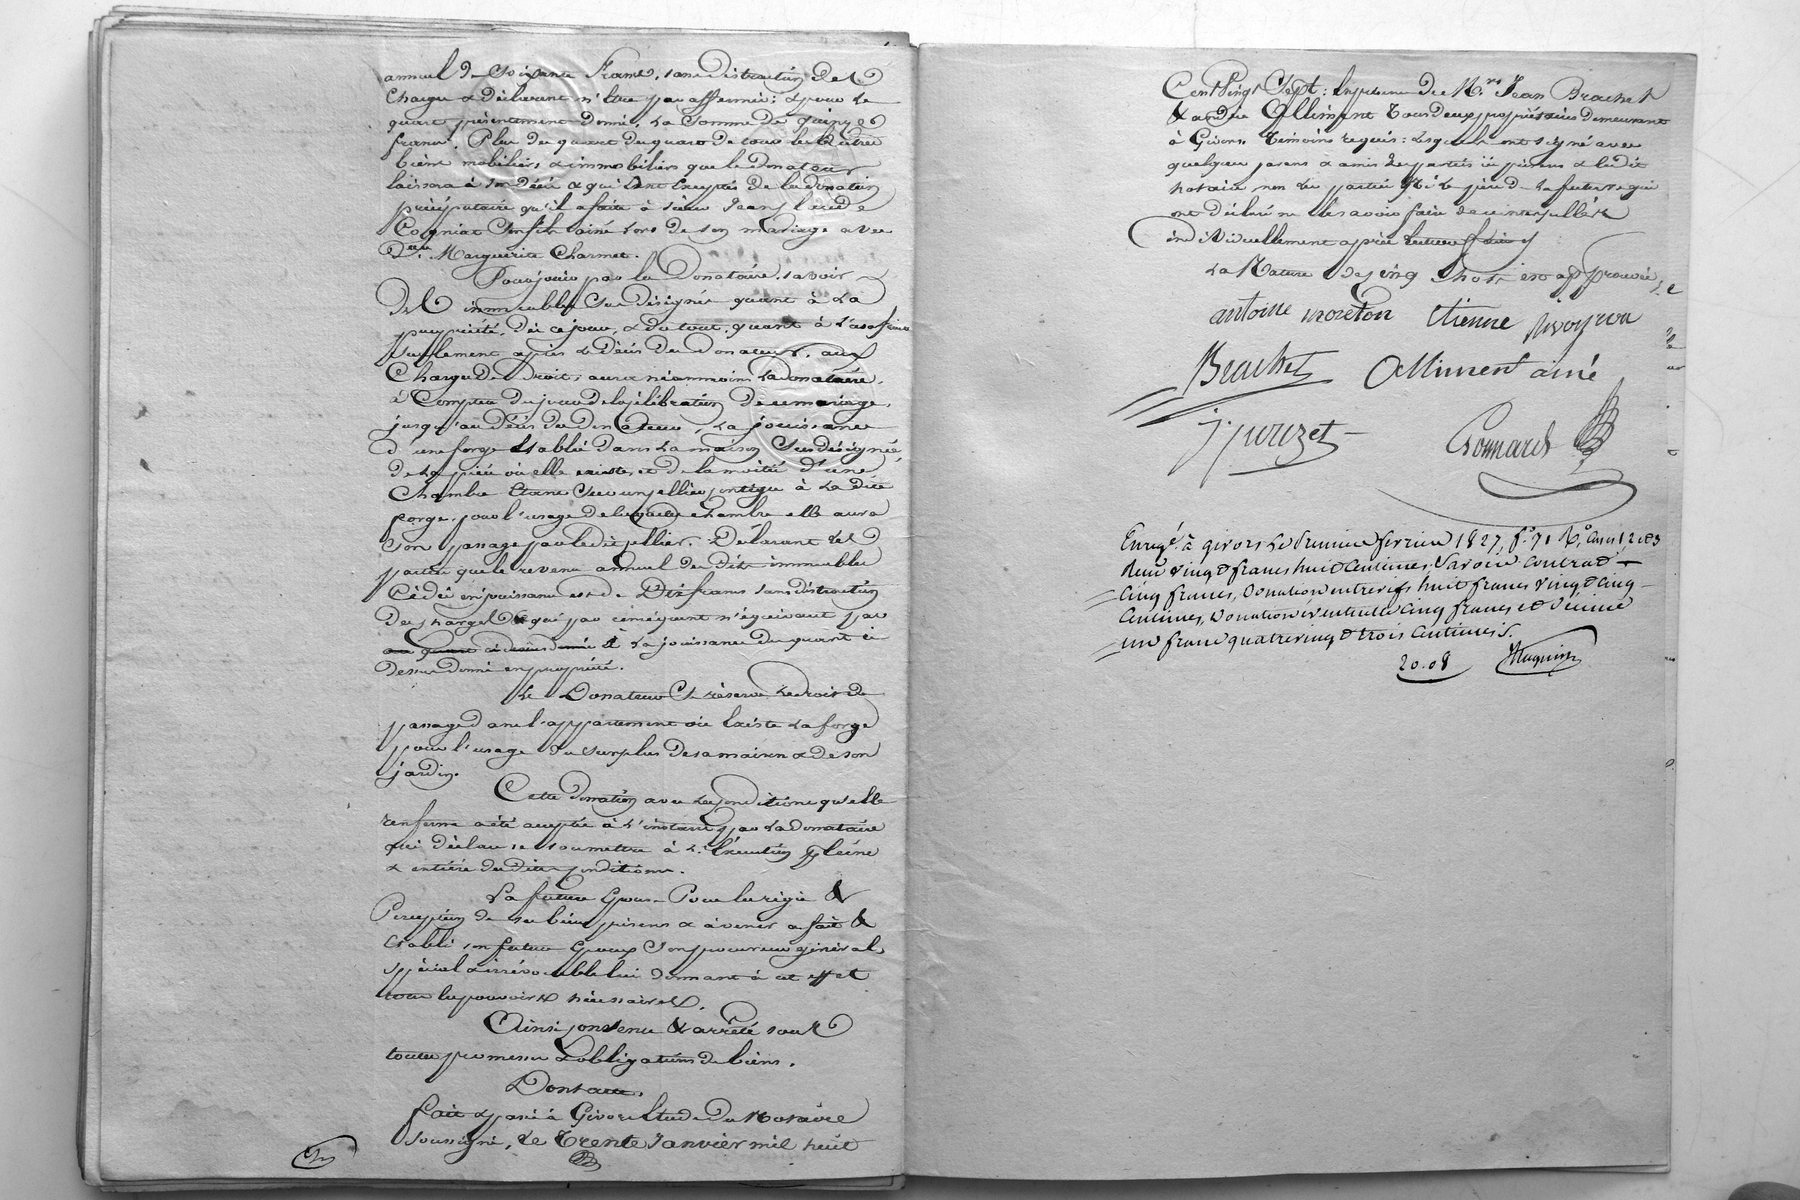 annuel de soixante francs, sans distraction des
charges & déclarent n'être pas affermé; & pour le
quart présentement donné, la somme de quinze
francs. Plus du quart du quart de tous les autres
biens mobiliers & immobiliers que le donateur
laissera à son décès & qui sont exceptés de la donation
préciputaire qu'il a faite à sieur Jean Claude
Cogniat son fils ainé lors de son mariage avec
Dme. Marguerite Charmet.
Pour jouir par la Donataire, savoir
des immeubles sus désignés quant à la
propriété, dès ce jour, & du tout, quant à l'usufruit
seulement après le décès du Donateur, aux
charges de droit; aura néanmoins la donataire,
à compter du jour de la célébration de ce mariage,
jusqu'au décès du donateur, la jouissance
d'une forge établie dans la maison sus désignée,
de la pièce où elle existe, et de la moitié d'une
chambre étant sur un cellier contigu à la dite
forge, pour l'usage de laquelle chambre elle aura
son passage par le dit cellier. Déclarant les
parties que le revenu annuel des dits immeubles
cédés en jouissance est de Dix francs sans distraction
des charges & qui par conséquent n'équivaut pas
à la jouissance du quart ci
dessus donné en propriété.
Le Donateur se réserve le droit de
passage dans l'appartement où existe la forge
pour l'usage du surplus de sa maison & de son
jardin.
Cette donation avec les conditions qu'elle
renferme a été acceptée à l'instant par la donataire
qui déclare se soumettre à l'exécution pleine
& entière des dites conditions.
La future épouse Pour la régie &
Perception de ses biens présens & à venir a fait &
établi son futur époux son procureur général
spécial & irrévocable lui donnant à cet effet
tous les pouvoirs nécessaires.
Ainsi convenu & arrêté sous
toutes promesses & obligations de biens.
Dont acte.
Fait & passé à Givors Etude du Notaire
soussigné, le Trente Janvier mil huit
Cent Vingt Sept: En présence de Mrs Jean Brachet
& andré Alliment Tous deux propriétaires demeurant
à Givors. Témoins requis: Lesquels ont signé avec
quelques parens & amis des parties ici présens & le dit
notaire non les parties Ni le père de la future qui
ont déclaré ne les avoir faire de ce interpellés
individuellement après lecture faite
La Rature de cinq mots est approuvée
antoine moreton Etienne rivoyron
Brachet Alliment ainé
J. pouzet Bonnard
Enregé. à givors le Premier fevrier 1827, f° 71 R°, Cases 1, 2 et 3
Reçu vingt francs huit Centimes. Savoir Contrat
Cinq francs, Donation entrevifs huit francs vingt Cinq
Centimes, Donation éventuelle Cinq francs et Décime
un franc quatrevingt trois Centimes.
20.08